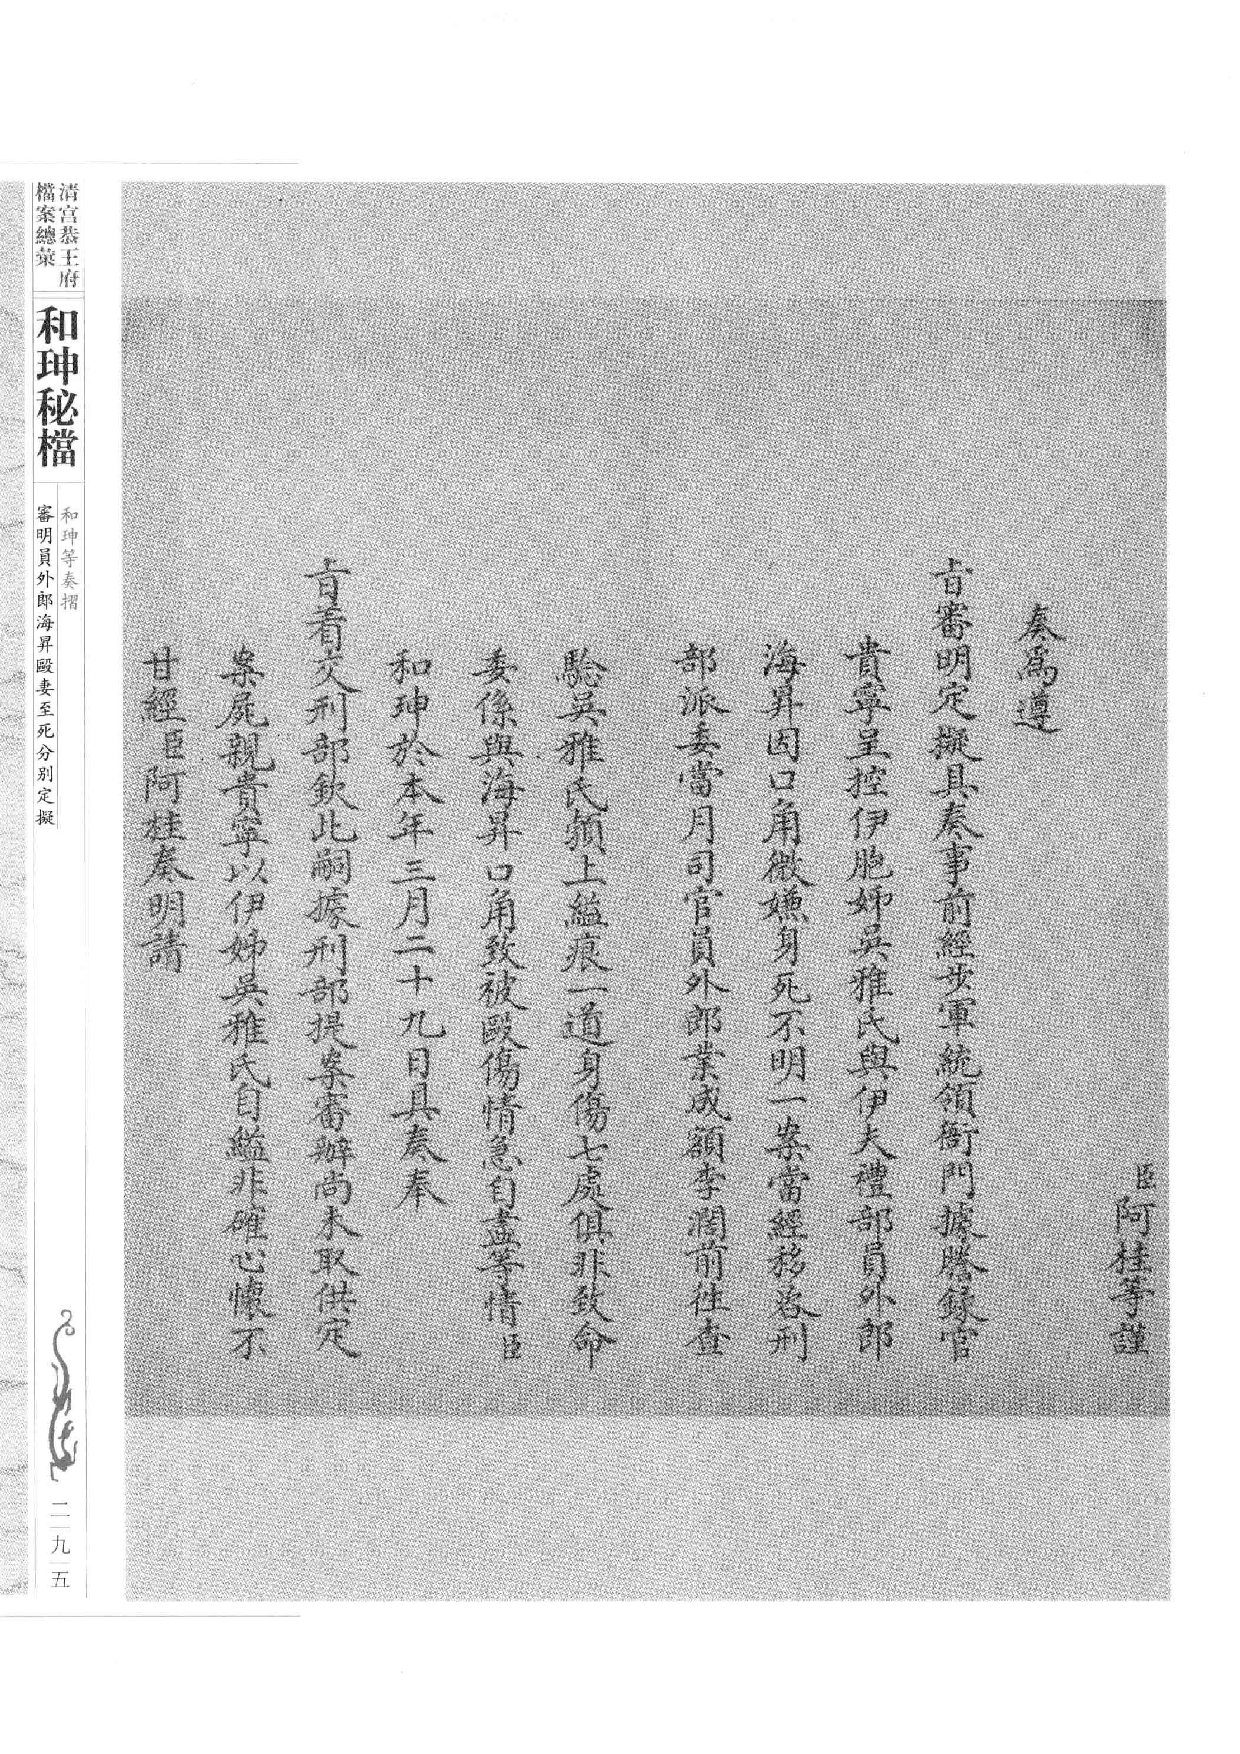 臣阿桂等謹
奏爲遵
旨審明定擬具奏事前經步軍統領衙門據謄錄官
貴寧呈控伊胞姊吳雅氏與伊夫禮部員外郎
海昇因口角微嫌身死不明一案當經移咨刑
部派委當月司官員外郎業成額李潤前往查
驗吳雅氏頦上縊痕一道身傷七處俱非致命
委係與海昇口角致被毆傷情急自盡等情臣
和珅於本年三月二十九日具奏奉
旨着交刑部欽此嗣據刑部提案審辦尚未取供定
案屍親貴寧以伊姊吳雅氏自縊非確心懷不
甘經臣阿桂奏明請
清宮恭王府
檔案總彙
和珅秘檔
和珅等奏摺
審明員外郎海昇毆妻至死分別定擬
二九五